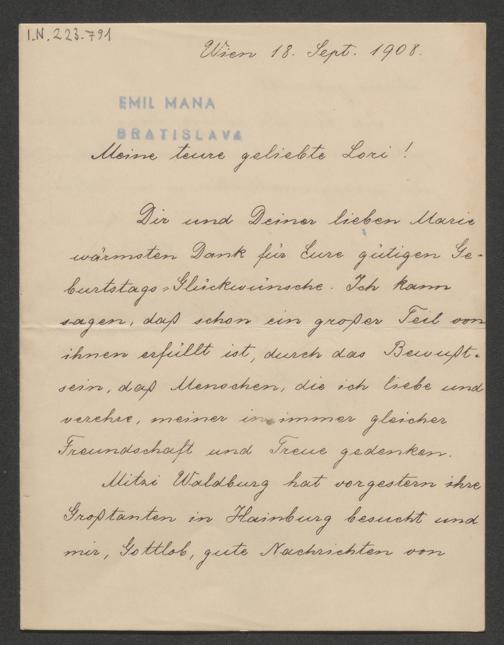 I.N. 223.791
Wien 18. Sept. 1908.
EMIL MANA
BRATISLAVA
Meine teure geliebte Lori!
Dir und Deiner lieben Marie
wärmsten Dank für Eure gütigen Ge-
burtstags-Glückwünsche. Ich kann
sagen, daß schon ein großer Teil von
ihnen erfüllt ist, durch das Bewußt-
sein, daß Menschen, die ich liebe und
verehre, meiner in immer gleicher
Freundschaft und Treue gedenken.
Mitzi Waldburg hat vorgestern ihre
Großtanten in Hainburg besucht und
mir, Gottlob, gute Nachrichten von